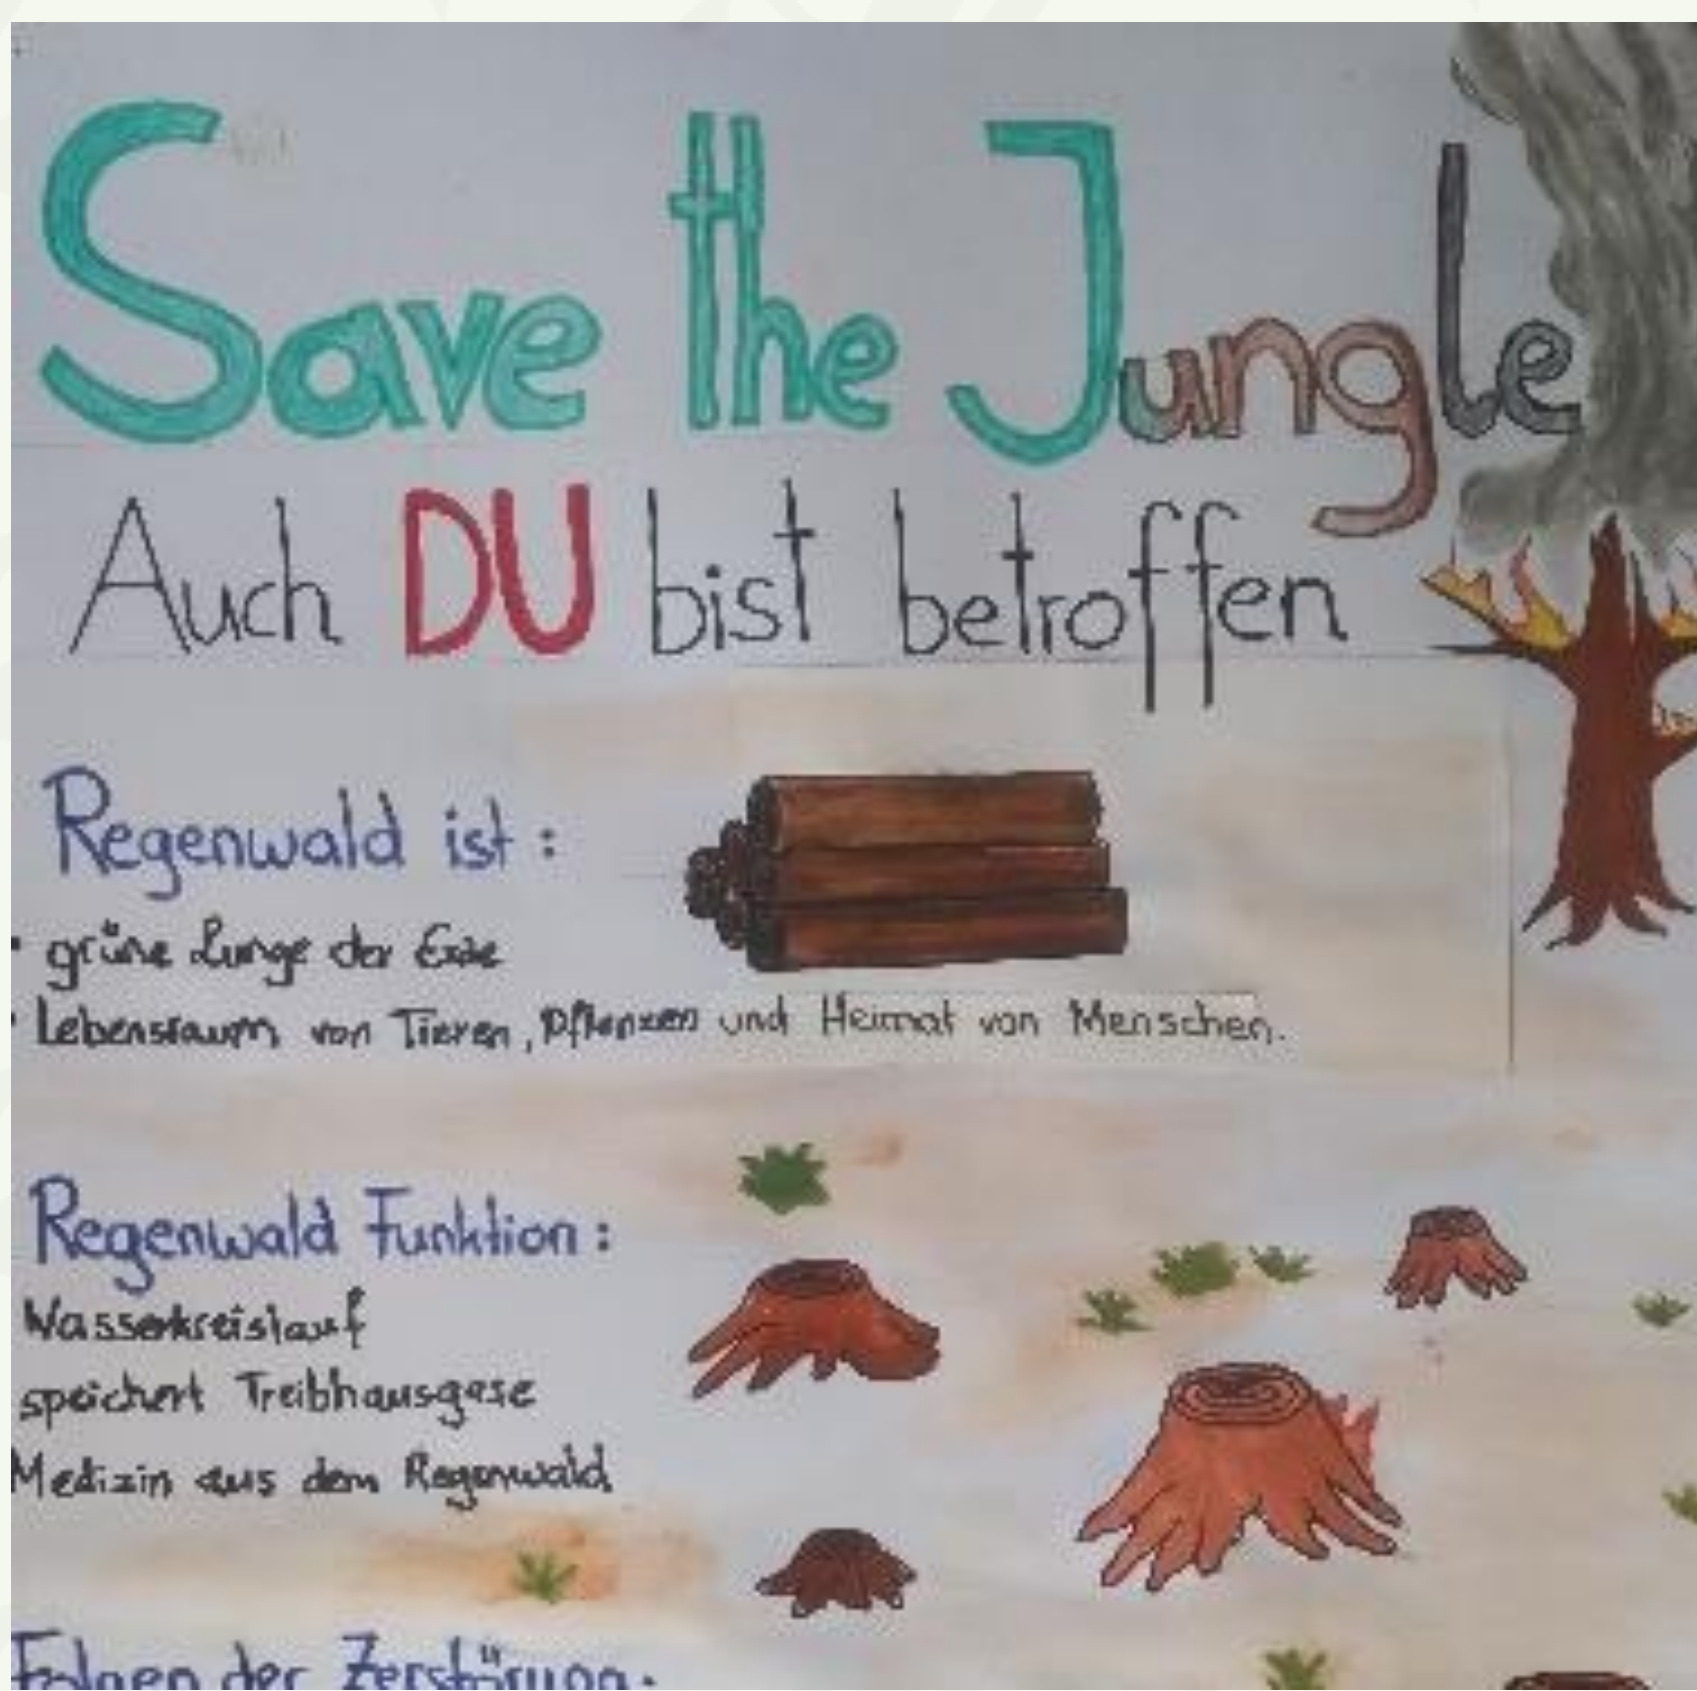 Save the Jungle
Auch DU bist betroffen
Regenwald ist:
• grüne Lunge der Erde
• Lebensraum von Tieren, Pflanzen und Heimat von Menschen.
Regenwald Funktion:
Wasserkreislauf
speichert Treibhausgase
Medizin aus dem Regenwald
Folgen der Zerstörung: